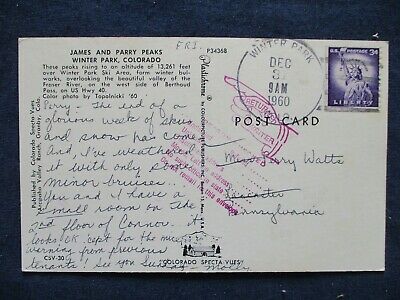 JAMES AND PARRY PEAKS
WINTER PARK, COLORADO
These peaks rising to an altitude of 13,261 feet
over Winter Park Ski Area, form winter bul-
warks, overlooking the beautiful valley of the
Fraser River, on the west side of Berthoud
Pass, on US Hwy. 40.
Color photo by Topolnicki '60
FRI.
P34358
Plastichrome
Published by Colorado Specta-Vues
Ranch, Granby, Colo.
Perry - The end of a
glorious week of skiing
and snow has come
And, I've weathered
it with only some
minor bruises...
You and I have a
small room on the
2nd floor of Connor. it
looks OK, cept for the
warning from previous
tenants! See you Sunday - Molly
CSV-30
"COLORADO SPECTA-VUES"
WINTER PARK
DEC
9AM
1960
U.S. POSTAGE 3¢
LIBERTY
POST CARD
RETURNED
TO WRITER
Perry Watts
Pennsylvania